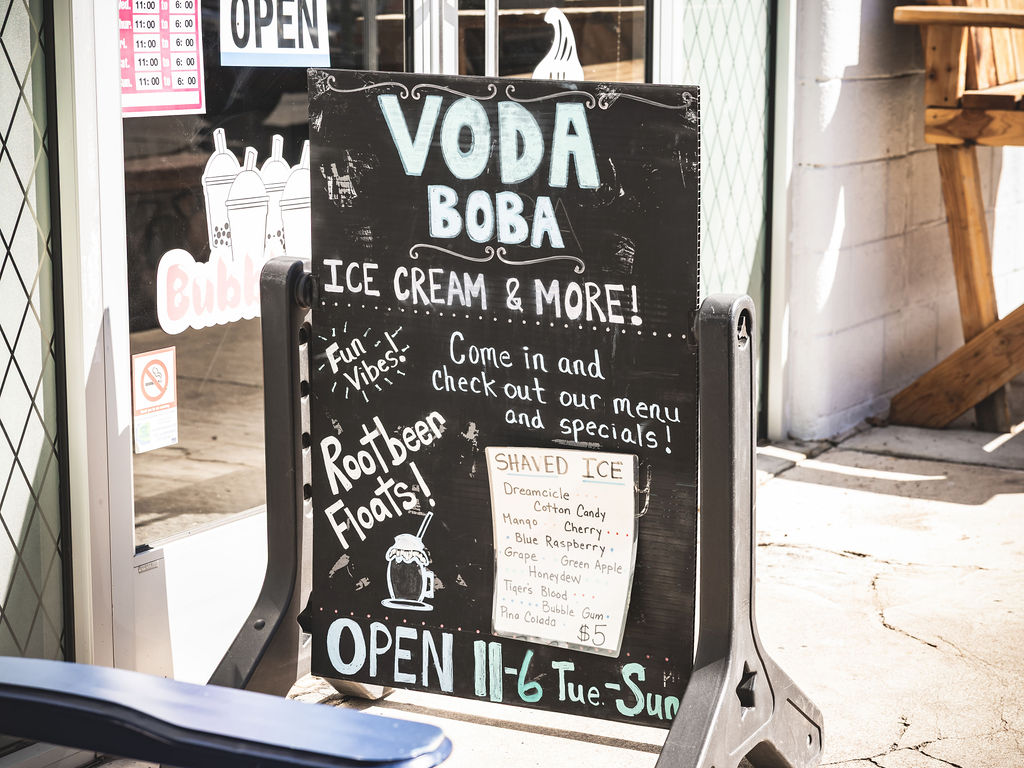 Wed. 11:00 to 6:00
Thur. 11:00 to 6:00
Fri. 11:00 to 6:00
Sat. 11:00 to 6:00
11:00 to 6:00
OPEN
Bubb
VODA
BOBA
ICE CREAM & MORE!
Fun
Vibes!
Come in and
check out our menu
and specials!
Rootbeer
Floats!
SHAVED ICE
Dreamcicle
Cotton Candy
Mango
Cherry
Blue Raspberry
Grape
Green Apple
Honeydew
Tiger's Blood
Bubble Gum
Pina Colada
$5
OPEN 11-6 Tue.-Sun